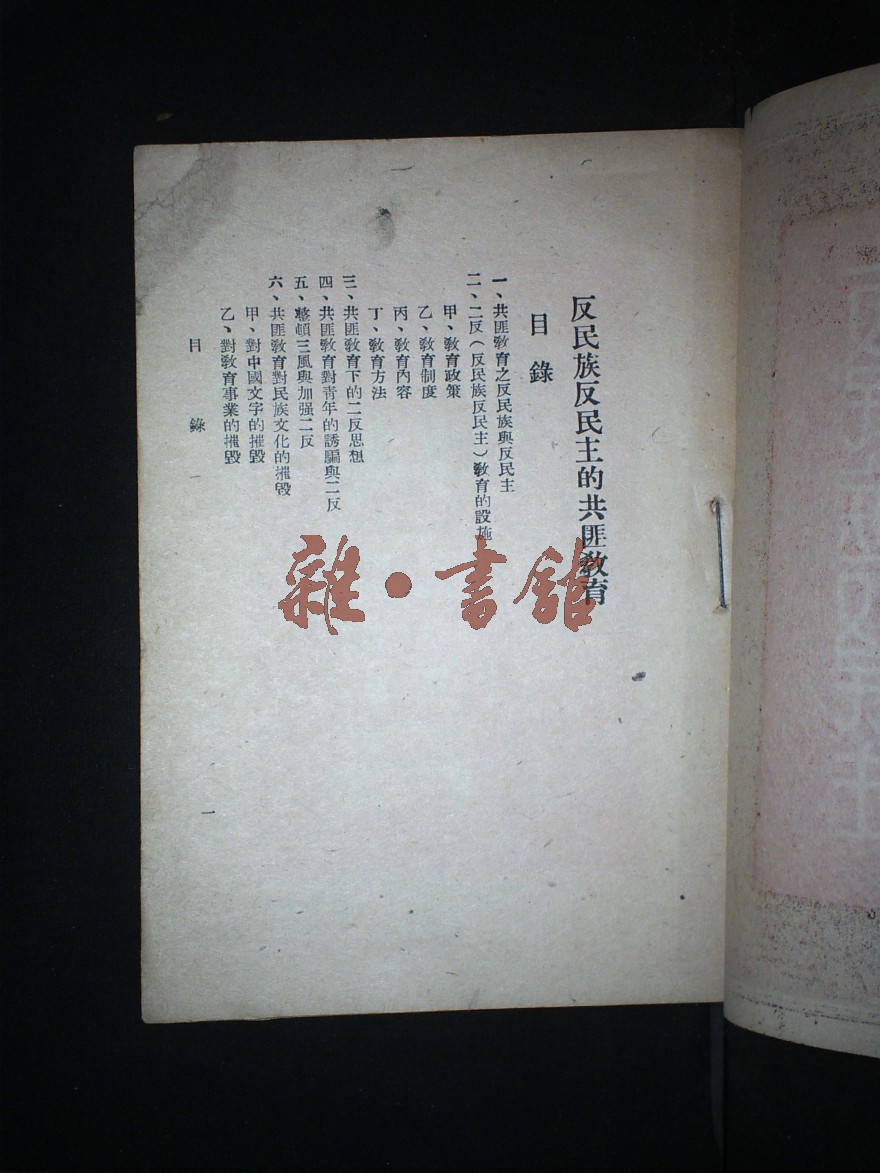 反民族反民主的共匪教育
目錄
一、共匪教育之反民族與反民主
二、二反（反民族反民主）教育的設施
甲、教育政策
乙、教育制度
丙、教育內容
丁、教育方法
三、共匪教育下的二反思想
四、共匪教育對青年的誘騙與二反
五、整頓三風與加强二反
六、共匪教育對民族文化的摧毀
甲、對中國文字的摧毀
乙、對教育事業的摧毀
目錄
一
雜·書館